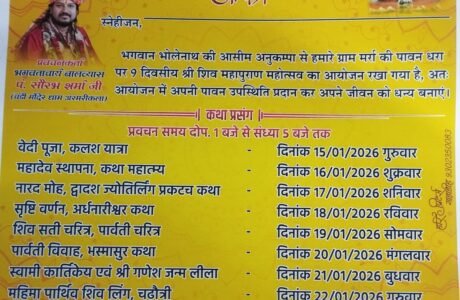 स्नेहीजन,
भगवान भोलेनाथ की आसीम अनुकम्पा से हमारे ग्राम मर्रा की पावन धरा
पर 9 दिवसीय श्री शिव महापुराण महोत्सव का आयोजन रखा गया है, अतः
आयोजन में अपनी पावन उपस्थिति प्रदान कर अपने जीवन को धन्य बनाएं।
प्रवचनकर्ता
भागवताचार्य बालव्यास
पं. सौरभ शर्मा जी
कथा प्रसंग
प्रवचन समय दोप. 1 बजे से संध्या 5 बजे तक
वेदी पूजा, कलश यात्रा - दिनांक 15/01/2026 गुरुवार
महादेव स्थापना, कथा महात्म्य - दिनांक 16/01/2026 शुक्रवार
नारद मोह, द्वादश ज्योतिर्लिंग प्रकटय कथा - दिनांक 17/01/2026 शनिवार
सृष्टि वर्णन, अर्धनारीश्वर कथा - दिनांक 18/01/2026 रविवार
शिव सती चरित्र, पार्वती चरित्र - दिनांक 19/01/2026 सोमवार
पार्वती विवाह, भस्मासुर कथा - दिनांक 20/01/2026 मंगलवार
स्वामी कार्तिकेय एवं श्री गणेश जन्म लीला - दिनांक 21/01/2026 बुधवार
महिमा पार्थिव शिव लिंग, चढौत्री - दिनांक 22/01/2026 गुरुवार